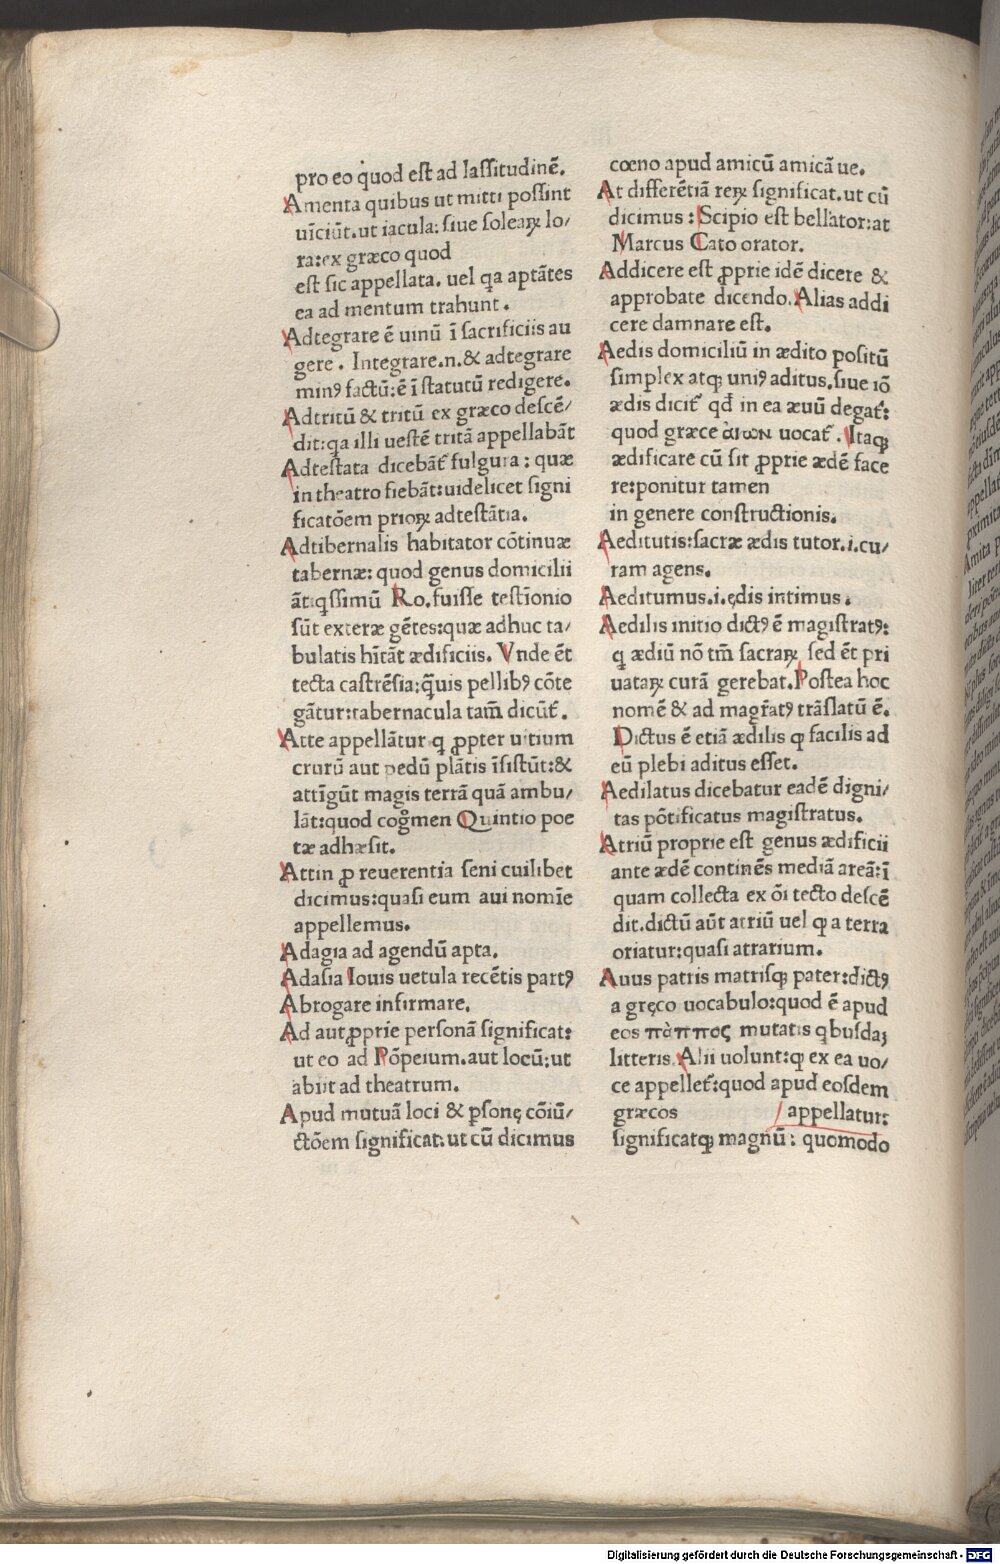 pro eo quod est ad lassitudinē.
Amenta quibus ut mitti possint
uīciūt. ut iacula: siue soleaꝝ lo/
ra: ex græco quod
est sic appellata. uel qa aptātes
ea ad mentum trahunt.
Adtegrare ē uinū ī sacrificiis au
gere. Integrare .n. & adtegrare
minꝰ factū: ē ī statutū redigere.
Adtritū & tritū ex græco descē/
dit: qa illi uestē tritā appellabāt
Adtestata dicebāt̄ fulgura: quæ
in theatro fiebāt: uidelicet signi
ficatōem prioꝝ adtestātia.
Adtibernalis habitator cōtinuæ
tabernæ: quod genus domicilii
ātiqssimū Ro. fuisse testīonio
sūt exteræ gētes: quæ adhuc ta/
bulatis hītāt ædificiis. Vnde ēt
tecta castrēsia: q̄uis pellibꝰ cōte
gātur: tabernacula tam̄ dicūt̄.
Atte appellātur q ꝓpter uitium
crurū aut pedū plātis īsistūt: &
attīgūt magis terrā quā ambu/
lāt: quod cog̅men Quintio poe
tæ adhæsit.
Attin ꝓ reuerentia seni cuilibet
dicimus: quasi eum aui nomīe
appellemus.
Adagia ad agendū apta.
Adasia Iouis uetula recētis partꝰ
Abrogare infirmare.
Ad aut ꝓprie personā significat:
ut eo ad Pōpeium. aut locū: ut
abiit ad theatrum.
Apud mutuā loci & psonę cōiū/
ctōem significat: ut cū dicimus
cœno apud amicū amicā ue.
At differētiā reꝝ significat. ut cū
dicimus: Scipio est bellator: at
Marcus Cato orator.
Addicere est ꝓprie idē dicere &
approbate dicendo. Alias addi
cere damnare est.
Aedis domiciliū in ædito positū
simplex atqꝫ uniꝰ aditus. siue iō
ædis dicit̄ qđ in ea æuū degat̄:
quod græce ἀιων uocat̄. Itaqꝫ
ædificare cū sit ꝓprie ædē face
re: ponitur tamen
in genere constructionis.
Aeditutis: sacræ ædis tutor .i. cu/
ram agens.
Aeditumus .i. ędis intimus.
Aedilis initio dictꝰ ē magistratꝰ:
q ædiū nō tm̄ sacraꝝ sed ēt pri
uataꝝ curā gerebat. Postea hoc
nomē & ad magr̄atꝰ trāslatū ē.
Dictus ē etiā ædilis ꝙ facilis ad
eū plebi aditus esset.
Aedilatus dicebatur eadē digni/
tas pōtificatus magistratus.
Atriū proprie est genus ædificii
ante ædē continēs mediā areā: ī
quam collecta ex ōi tecto descē
dit. dictū aūt atriū uel ꝙ a terra
oriatur: quasi atrarium.
Auus patris matrisqꝫ pater: dictꝰ
a gręco uocabulo: quod ē apud
eos πὰππος mutatis qbusdaꝫ
litteris. Alii uolunt: ꝙ ex ea uo/
ce appellet̄: quod apud eosdem
græcos appellatur:
significatqꝫ magnū: quomodo
Digitalisierung gefördert durch die Deutsche Forschungsgemeinschaft - DFG